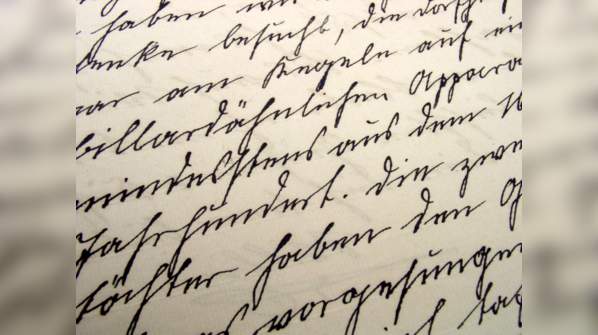 haben wir
besucht, die dort
war am Kegeln auf ein
billardähnlichen Appara
mindestens aus dem 1
Jahrhundert. Die zwe
töchter haben den G
vorgesungen
ich